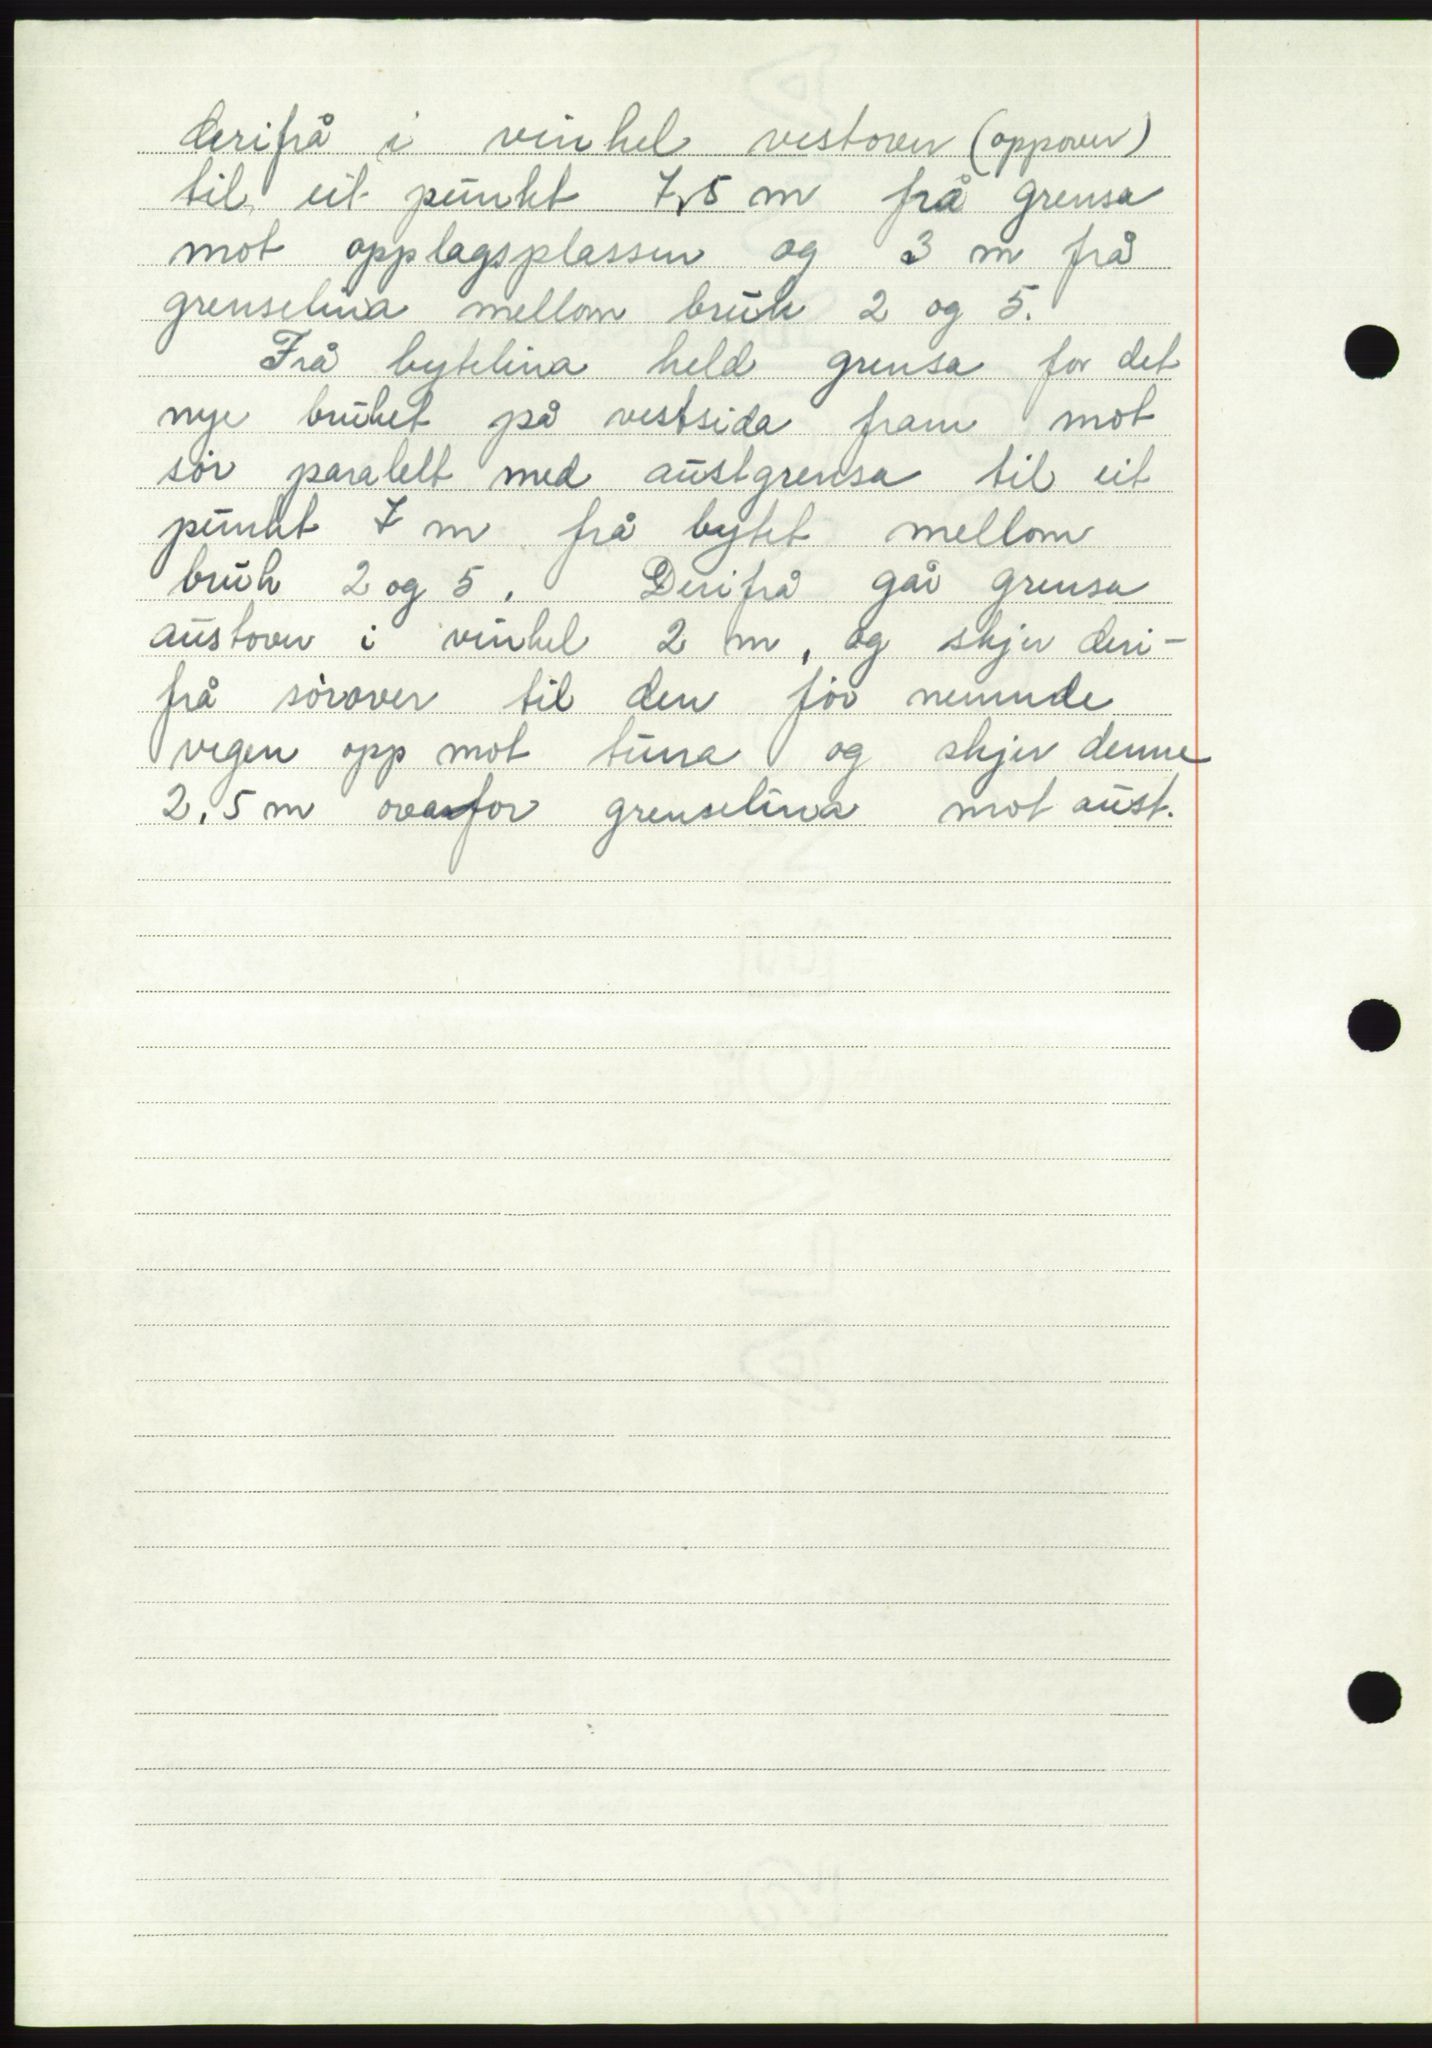 derifrå i vinkel vestover (oppover)
til eit punkt 7,5 m frå grensa
mot opplagsplassen og 3 m frå
grenselina mellom bruk 2 og 5.
Frå bytelina held grensa for det
nye bruket på vestsida fram mot
sör paralelt med austgrensa til eit
punkt 7 m frå bytet mellom
bruk 2 og 5. Derifrå går grensa
austover i vinkel 2 m, og skjer deri-
frå sörover til den för nemnde
vegen opp mot tuna og skjer denne
2,5 m ovanfor grenselina mot aust.